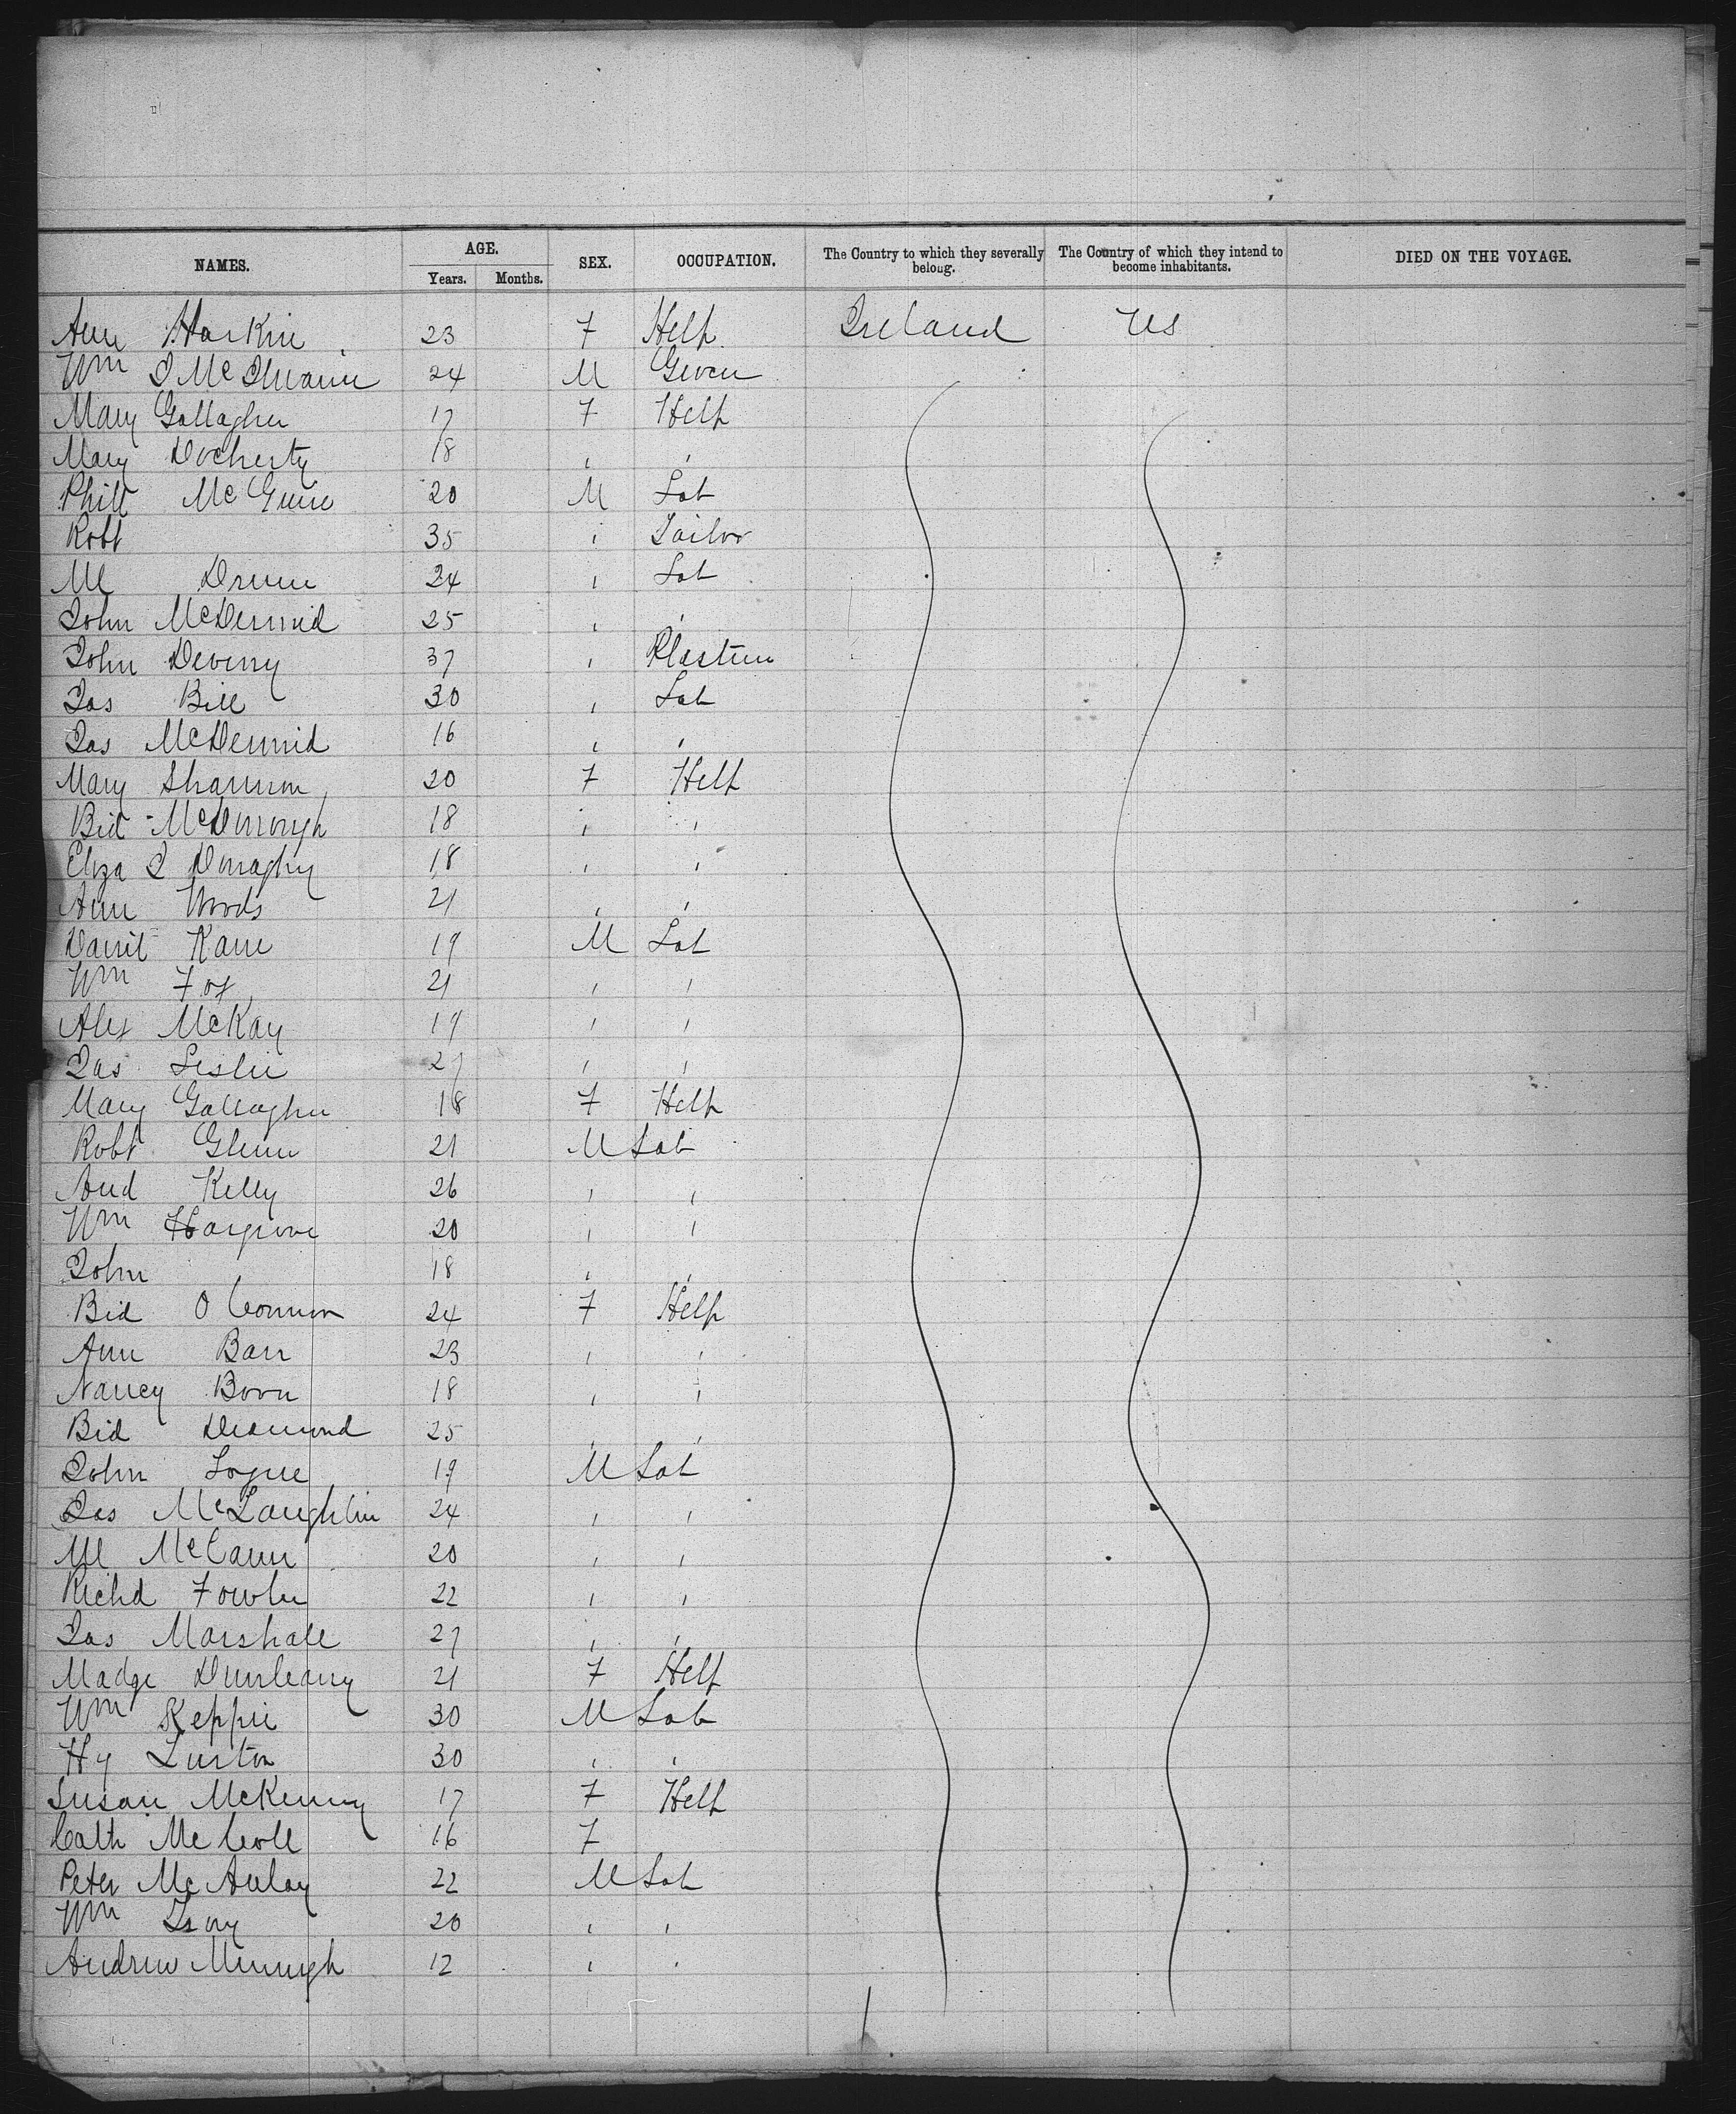 NAMES. AGE. Years. Months. SEX. OCCUPATION. The Country to which they severally beloug. The Country of which they intend to become inhabitants. DIED ON THE VOYAGE.
Ann Harkin 23 F Help Ireland US
Wm J McIlwain 24 M Grocer
Mary Gallagher 17 F Help
Mary Docherty 18 , ,
Phill McGuire 20 M Lab
Robt 35 , Tailor
Ml Drum 24 , Lab
John McDermid 25 , ,
John Deveny 37 , Plasterer
Jas Bill 30 , Lab
Jas McDermid 16 , ,
Mary Shannon 20 F Help
Bid McDonough 18 , ,
Eliza J Donaghy 18 , ,
Ann Woods 21 , ,
Danil Kane 19 M Lab
Wm Fox 21 , ,
Alex McKay 19 , ,
Jas Leslie 27 , ,
Mary Gallagher 18 F Help
Robt Glenn 21 M Lab
And Kelly 26 , ,
Wm Hargrove 20 , ,
John 18 , ,
Bid O Connor 24 F Help
Ann Barr 23 , ,
Nancy 18 , ,
Bid Diamond 25 , ,
John Logue 19 M Lab
Jas McLaughlin 24 , ,
Ml McCann 20 , ,
Richd Fowler 22 , ,
Jas Marshall 27 , ,
Madge Dunleavy 21 F Help
Wm Keppie 30 M Lab
Hy Lurton 30 , ,
Susan McKenny 17 F Help
Cath McCole 16 F
Peter McAulay 22 M Lab
Wm 20 , ,
Andrew 12 , ,